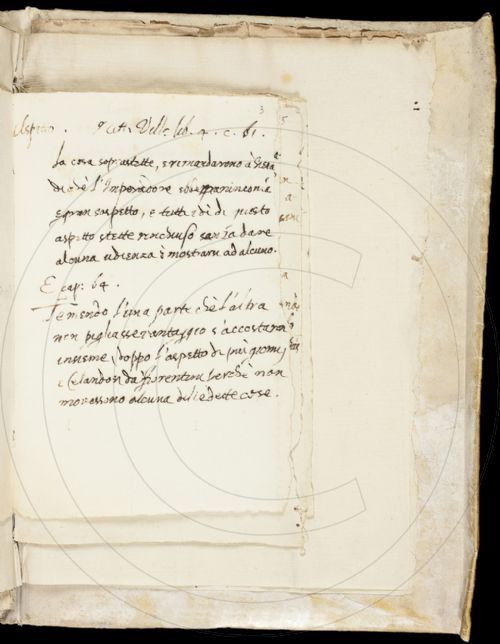 3
Aspetto. Matt. Vill. lib. 4. c. 61.
la cosa soprastette, e rimandarono à Pisa
di chè l'Imperadore ebbe maninconia
e gran sospetto, e tutti i dì di questo
aspetto stette rinchiuso sanza dare
alcuna udienza ò mostrarsi ad alcuno.
E cap. 64.
Temendo l'una parte chè l'altra
non pigliasse vantaggio s'accostaron
insieme, doppo l'aspetto di più giorni
e celandosi da' fiorentini perchè non
movessono alcuna delle dette cose.
5
a